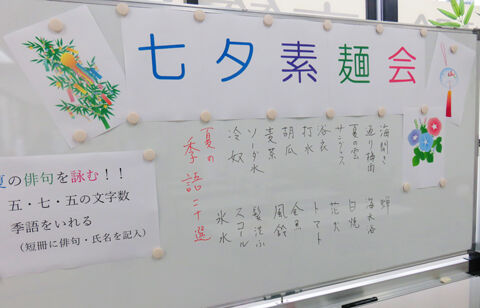 七夕素麺会
夏の俳句を詠む！！
五・七・五の文字数
季語をいれる
（短冊に俳句・氏名を記入）
夏の
季語二十選
海開き　蝉
返り梅雨　海水浴
夏の雲　日焼
サングラス　花火
浴衣　トマト
打水　金魚
胡瓜　風鈴
麦茶　髪洗ふ
ソーダ水　スコール
冷奴　氷水